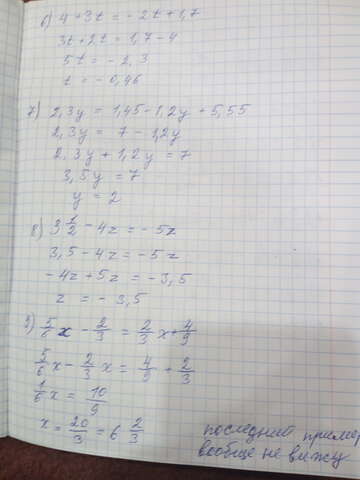 6) 4+3t = -2t+1,7
3t+2t = 1,7-4
5t = -2,3
t = -0,46
7) 2,3y = 1,45-1,2y+5,55
2,3y = 7-1,2y
2,3y+1,2y = 7
3,5y = 7
y = 2
8) 3 1/2 - 4z = -5z
3,5-4z = -5z
-4z+5z = -3,5
z = -3,5
9) 5/6 x - 2/3 = 2/3 x + 4/9
5/6 x - 2/3 x = 4/9 + 2/3
1/6 x = 10/9
x = 20/3 = 6 2/3
последний пример
вообще не вижу